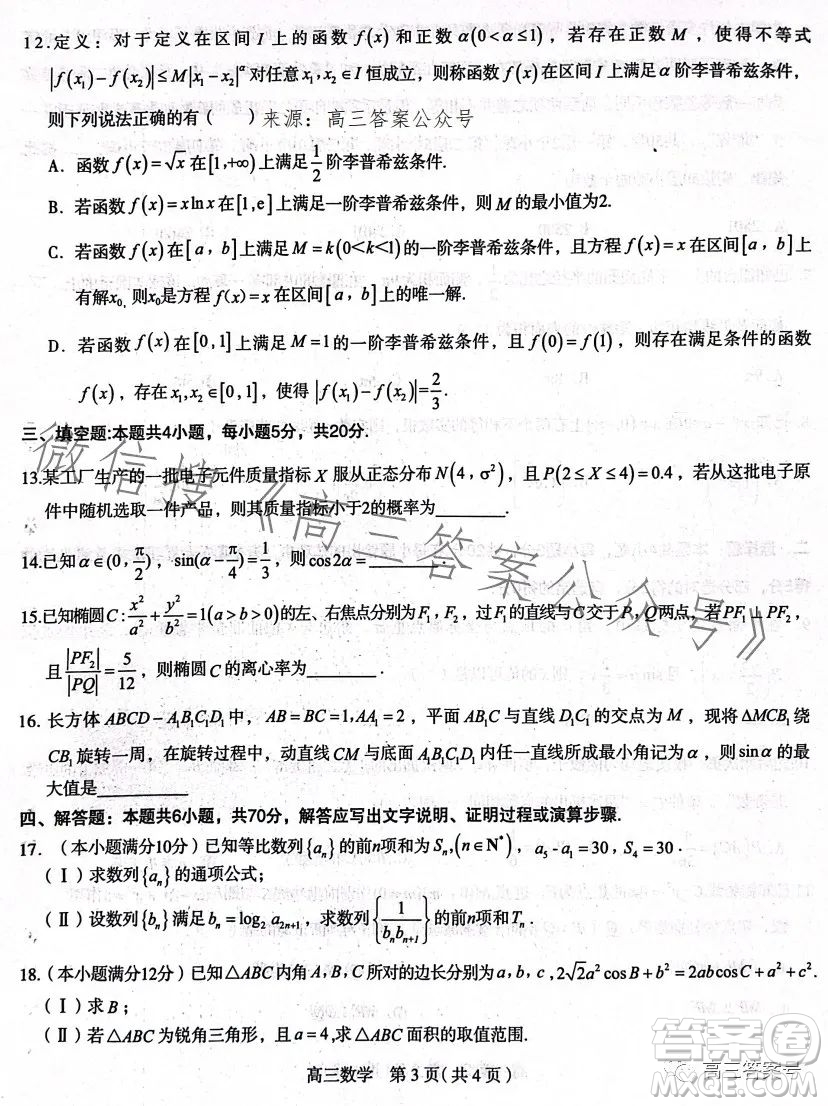 12.定义：对于定义在区间 I 上的函数 f(x) 和正数 α(0<α≤1)，若存在正数 M，使得不等式
|f(x₁)-f(x₂)|≤M|x₁-x₂|^α 对任意 x₁,x₂∈I 恒成立，则称函数 f(x) 在区间 I 上满足 α 阶李普希兹条件，
则下列说法正确的有（ ）来源：高三答案公众号
A．函数 f(x)=√x 在[1,+∞) 上满足 1/2 阶李普希兹条件.
B．若函数 f(x)=xlnx 在[1,e] 上满足一阶李普希兹条件，则 M 的最小值为2.
C．若函数 f(x) 在[a,b] 上满足 M=k(0<k<1) 的一阶李普希兹条件，且方程 f(x)=x 在区间[a,b] 上
有解x₀，则x₀是方程 f(x)=x 在区间[a,b] 上的唯一解.
D．若函数 f(x) 在[0,1] 上满足 M=1 的一阶李普希兹条件，且 f(0)=f(1)，则存在满足条件的函数
f(x)，存在 x₁,x₂∈[0,1]，使得 |f(x₁)-f(x₂)|=2/3.
三、填空题:本题共4小题，每小题5分，共20分.
13.某工厂生产的一批电子元件质量指标 X 服从正态分布 N(4,σ²)，且 P(2≤X≤4)=0.4，若从这批电子原
件中随机选取一件产品，则其质量指标小于2的概率为________.
14.已知 α∈(0,π/2)，sin(α-π/4)=1/3，则cos2α=________.
15.已知椭圆 C:x²/a²+y²/b²=1(a>b>0) 的左、右焦点分别为 F₁，F₂，过 F₁ 的直线与C交于 P，Q两点，若 PF₁⊥PF₂，
且 |PF₂|/|PQ|=5/12，则椭圆 C 的离心率为________.
16.长方体 ABCD-A₁B₁C₁D₁ 中，AB=BC=1,AA₁=2，平面 AB₁C 与直线 D₁C₁ 的交点为 M，现将 ΔMCB₁ 绕
CB₁ 旋转一周，在旋转过程中，动直线 CM 与底面 A₁B₁C₁D₁ 内任一直线所成最小角记为 α，则 sinα 的最
大值是________
四、解答题：本题共6小题，共70分，解答应写出文字说明、证明过程或演算步骤.
17.（本小题满分10分）已知等比数列{aₙ} 的前n项和为 Sₙ,(n∈N*)，a₅-a₁=30，S₄=30.
（Ⅰ）求数列{aₙ} 的通项公式；
（Ⅱ）设数列{bₙ} 满足 bₙ=log₂a₂ₙ₊₁，求数列{1/(bₙbₙ₊₁)} 的前n项和 Tₙ.
18.（本小题满分12分）已知△ABC 内角 A,B,C 所对的边长分别为 a,b,c,2√2a²cosB+b²=2abcosC+a²+c².
（Ⅰ）求 B；
（Ⅱ）若△ABC 为锐角三角形，且 a=4,求△ABC 面积的取值范围.
高三数学 第3页(共4页)
微信搜《高三答案公众号》
高三答案号
答案圈
MXQE.COM